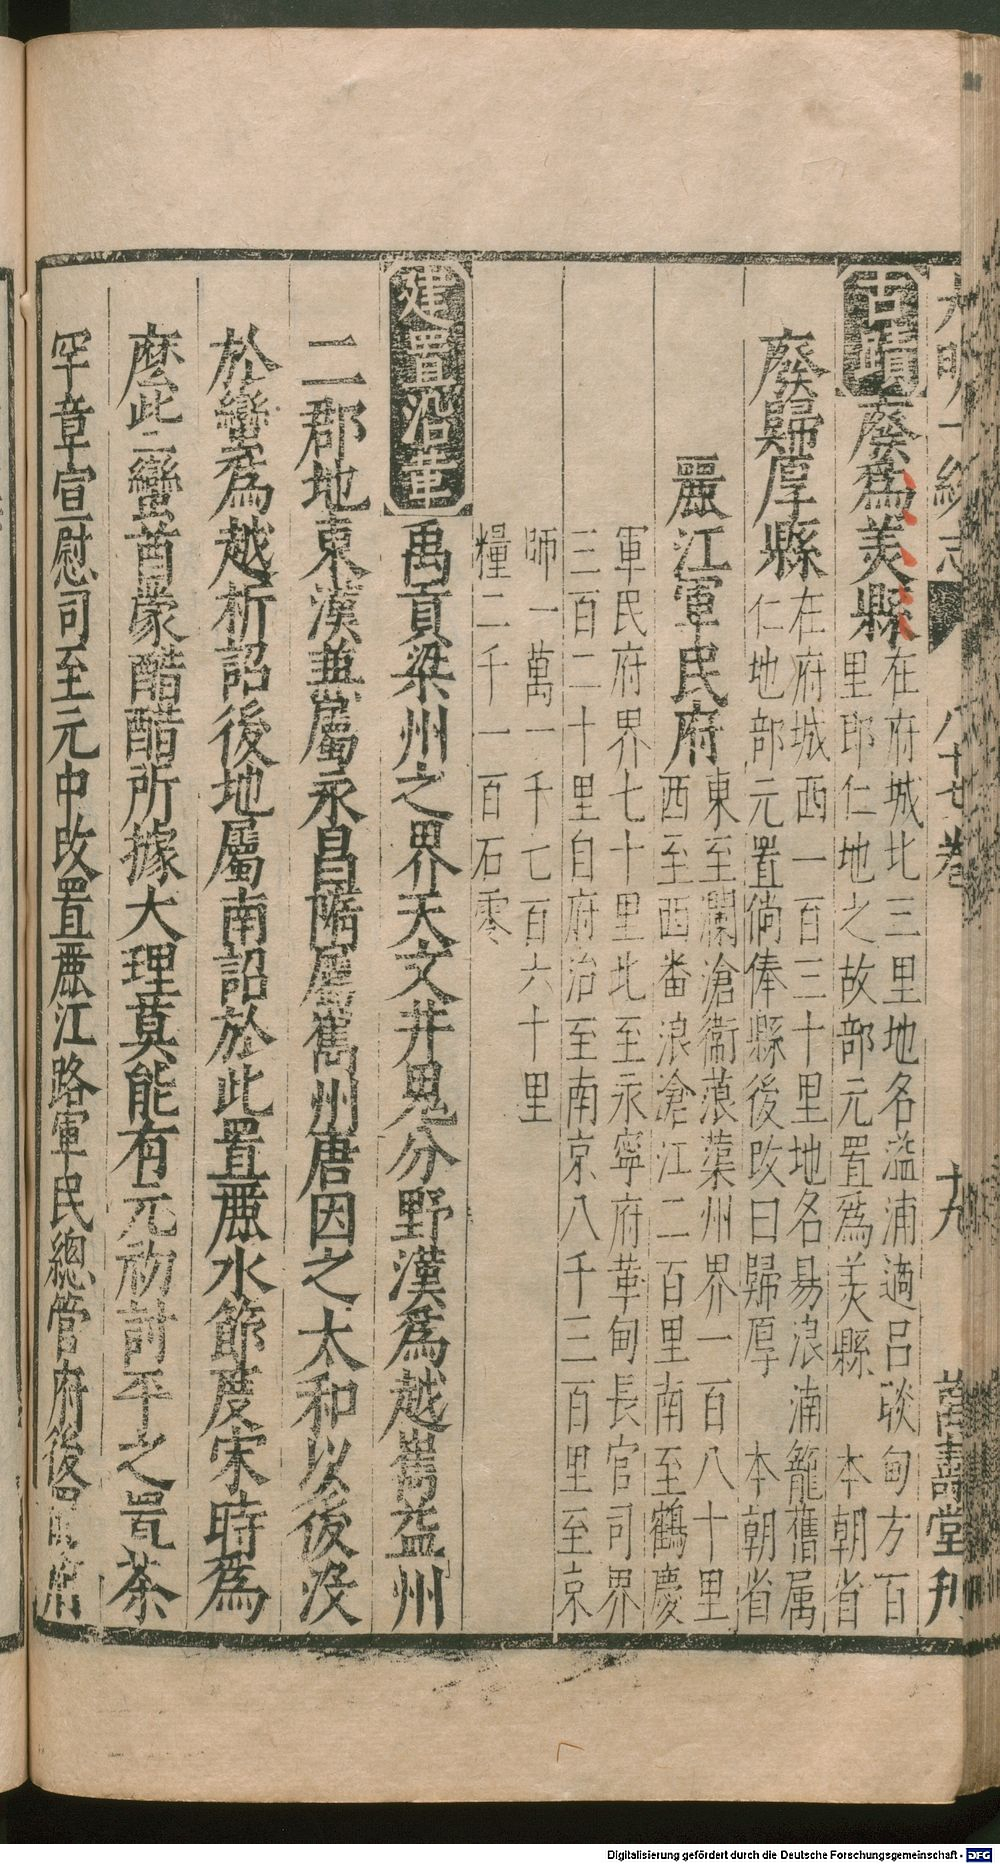 大明一統志 八十七卷 十九 萬壽堂刊
古蹟 廢爲美縣 在府城北三里地名溢浦適呂啖甸方百
里卽仁地之故部元置爲美縣 本朝省
廢歸厚縣 在府城西一百三十里地名易浪湳籠舊属
仁地部元置倘俸縣後改曰歸厚 本朝省
麗江軍民府 東至瀾滄衞蒗蕖州界一百八十里
西至西畨浪滄江二百里南至鶴慶
軍民府界七十里北至永寧府革甸長官司界
三百二十里自府治至南京八千三百里至京
師一萬一千七百六十里
糧二千一百石零
建置沿革 禹貢梁州之界天文井鬼分野漢爲越嶲益州
二郡地東漢兼屬永昌隋屬嶲州唐因之太和以後没
於蠻爲越析詔後地屬南詔於此置麗水節度宋時爲
麽此二蠻酋蒙醋醋所據大理莫能有元初討平之置茶
罕章宣慰司至元中改置麗江路軍民總管府後罷府
Digitalisierung gefördert durch die Deutsche Forschungsgemeinschaft - DFG